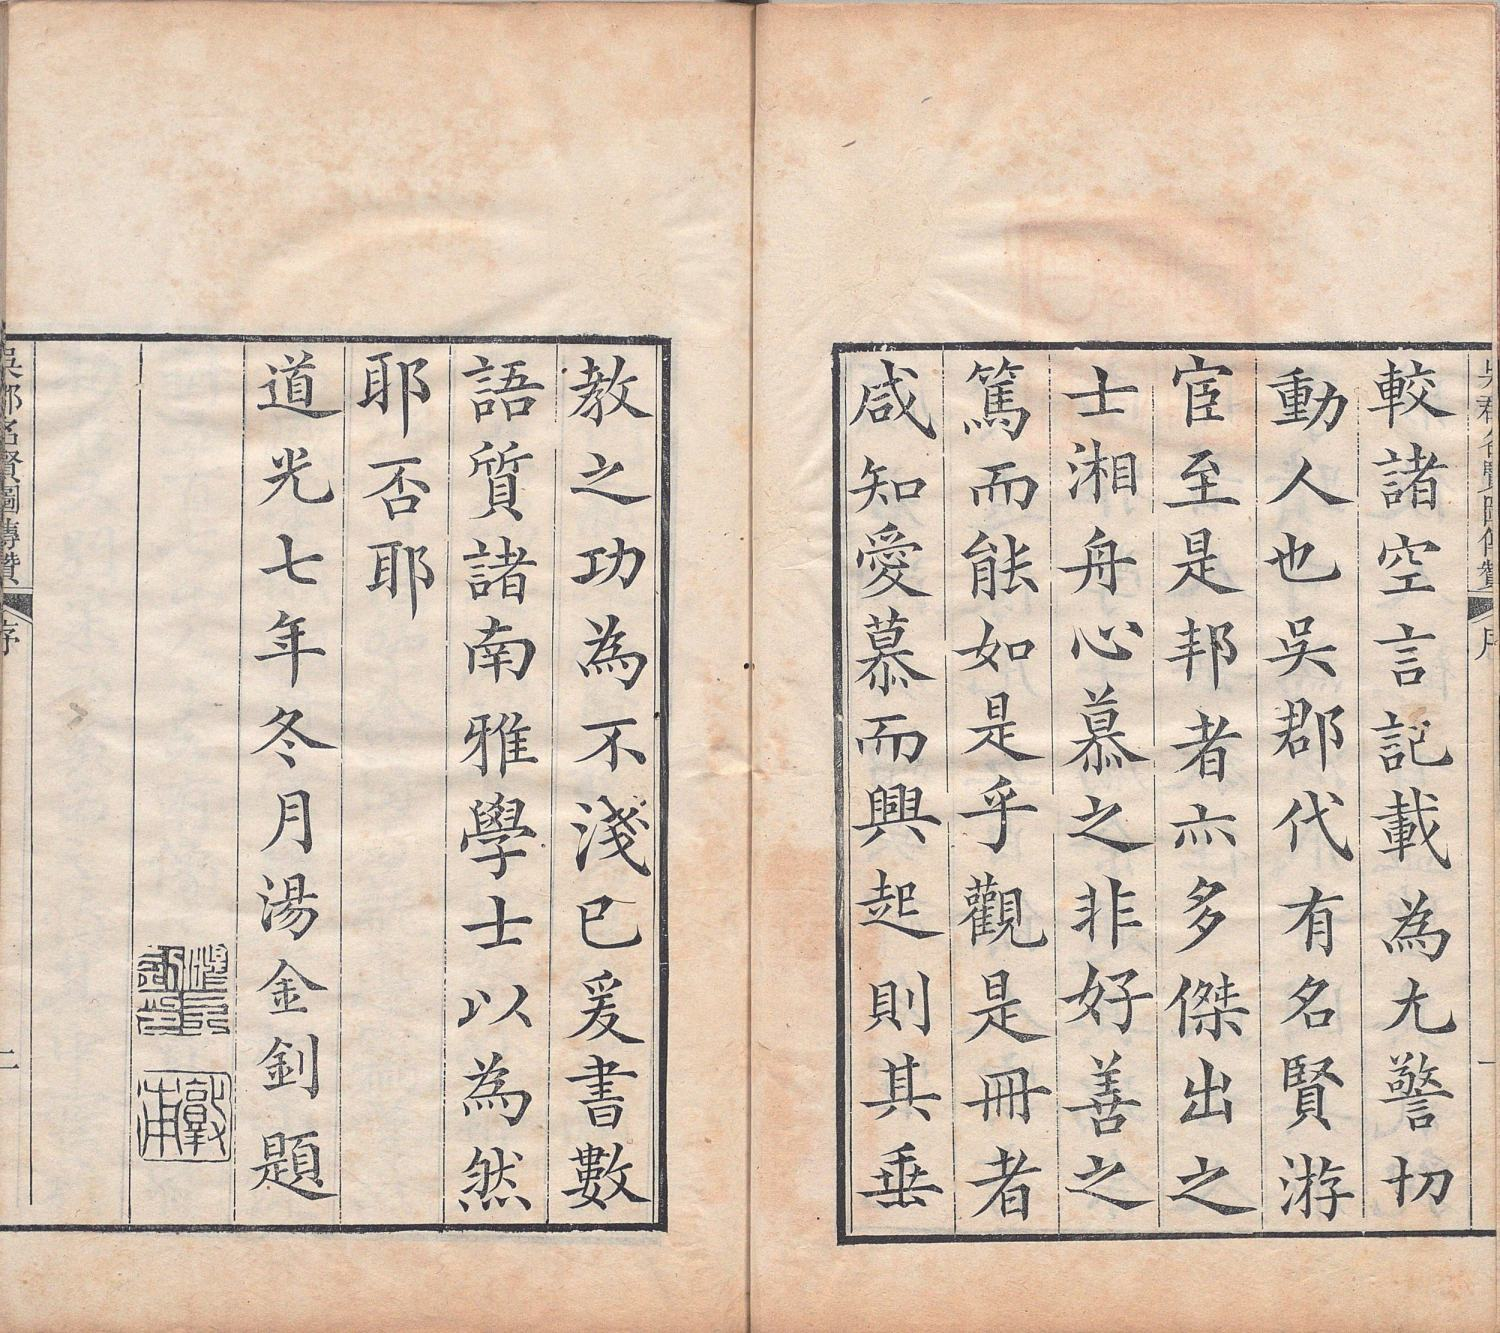 吳郡名賢圖傳贊 序 一
較諸空言記載為尢警切
動人也吳郡代有名賢游
宦至是邦者亦多傑出之
士湘舟心慕之非好善之
篤而能如是乎觀是冊者
咸知愛慕而興起則其垂
教之功為不淺已爰書數
語質諸南雅學士以為然
耶否耶
道光七年冬月湯金釗題
敦甫
吳郡名賢圖傳贊 序 二